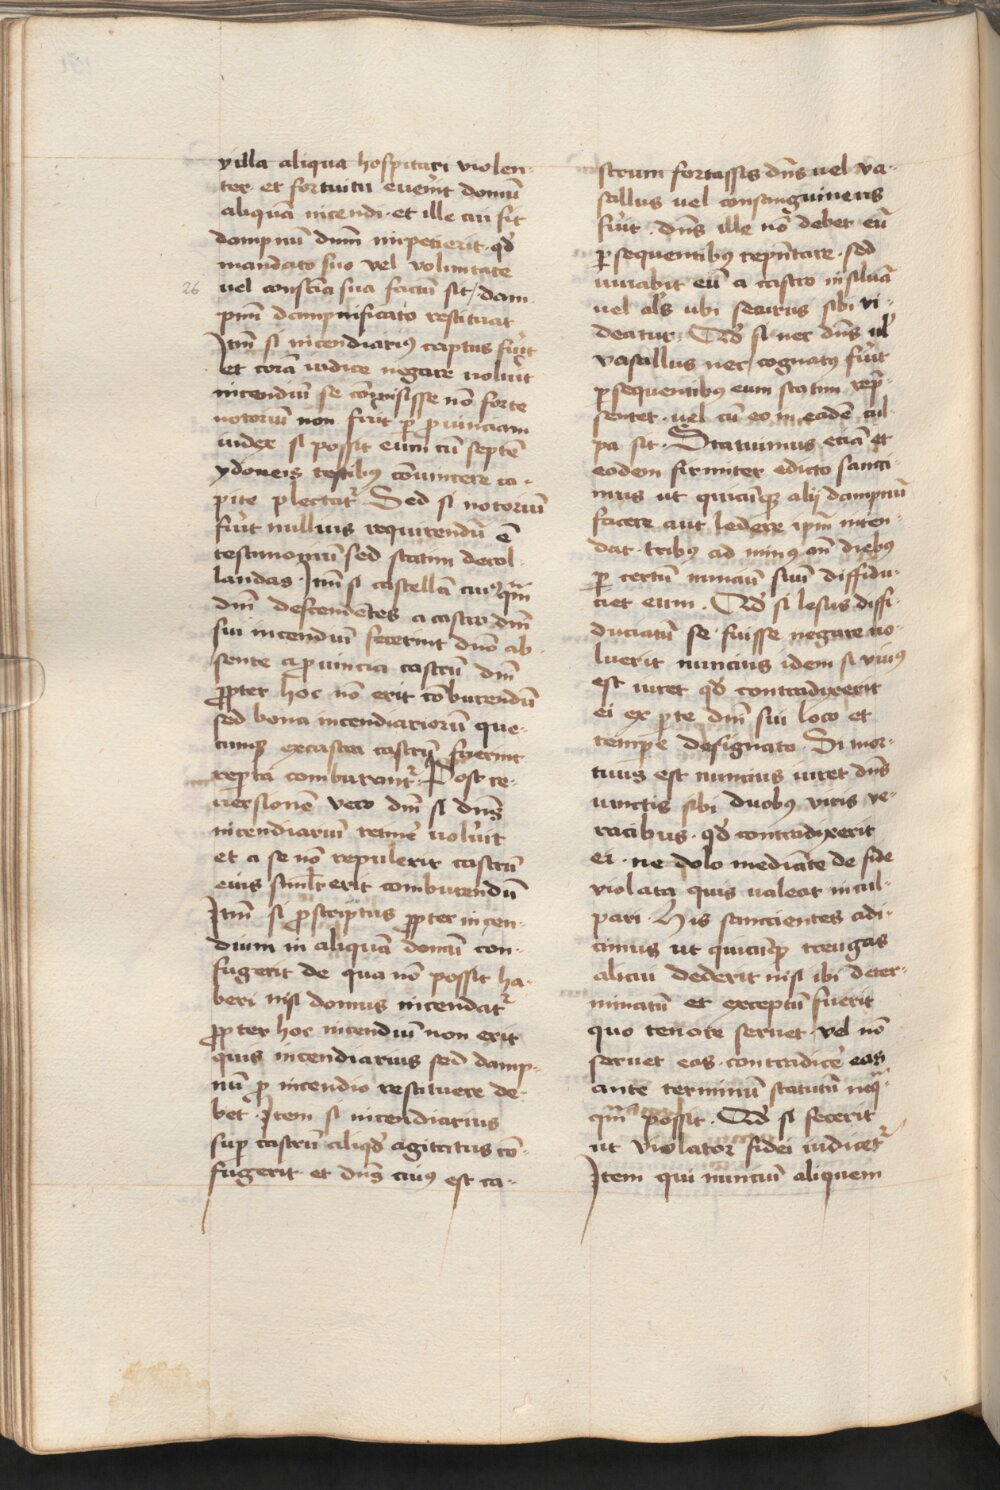 villa aliqua hospitari violen-
ter et fortuitu eveñit domū
aliquā incendi · et ille cui fit
dampnū dūm impetierit · qd̄
mandato suo vel voluntate
26
vel conscīa sua factū sit / dam
pnū dampnificato restituat
Itm̄ si incendiarius captus fūit
et corā iudice negare uolūit
incendiū se cōmisisse nō forte
notoriū non fūit p̄ provinciam
iudex si possit eum cū septē
ydoneis testibus cōuincere ca-
pite plectatr Sed si notoriū
fūit nullius requirendū ē
testimoniū sed statim decol-
landus · Itm̄ si castellā cuiusq̄m
dnī descendētes a castro dnī
sui incendiū fecerint dn̄o ab-
sente a provincia castrū dnī
propter hoc nō erit cōburendū
sed bona incendiariorū que-
cumq extra castrū fuerint
reperta comburantr · Post re-
uersionē vero dnī si dn̄s
incendiariū retinēe uolūit
et a se nō repulerit castrū
eius similr erit comburendū
Itm̄ si proscriptus propter incen-
dium in aliquā domū con-
fugerit de qua nō possit ha-
beri nisi domus incendatr
propter hoc incendiū non erit
quis incendiarius sed damp-
nū pro incendio restituere de-
bet · Item si incendiarius
sup castrū aliqd̄ agitatus cō-
fugerit et dn̄s cuius est ca-
strum fortassis dn̄s uel va-
sallus uel consanguineus
fūit · dn̄s ille nō debet eū
p̄sequentibus rep̄ntare · sed
iuuabit eū a castro in siluā
uel al̄s ubi securus sibi vi-
deatur · Qd̄ si nec dn̄s ul̄
vasallus nec cognatus fūit
p̄sequentibus eum statim rep̄-
sentet · uel cū eo in eadē cul-
pa sit · Statuimus etiā et
eodem firmiter edicto sanci-
mus ut quicūq alij dampnū
facere aut ledere ip̄m inten-
dat · tribus ad minus añ diebus
p̄ certū nunciū suū diffidu-
ciet eum · Qd̄ si lesus diffi-
duciatū se fuisse negare uo-
luerit nuncius idem si vivus
est iuret qd̄ contradixerit
ei ex p̄te dnī sui loco et
temp̄e designato · Si mor-
tuus est nuncius iuret dn̄s
iunctis sibi duobus viris ve-
racibus · qd̄ contradixerit
ei · ne dolo mediāte de fide
violata quis ualeat incul-
pari · His sanccientes adi-
cimus ut quicūq treugas
alicui dederit nisi ibi deter-
minatū et exceptū fuerit
quo tenore seruet · vel nō
seruet eas · contradicē eas
ante terminū statutū neq̄-
q̄m possit · Qd̄ si fecerit
ut violator fidei iudicetr
Item qui nunciū aliquem